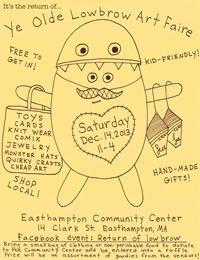 It's the return of...
Ye Olde Lowbrow Art Faire
FREE TO
GET IN!
KID-FRIENDLY!
TOYS
CARDS
KNIT WEAR
COMIX
JEWELRY
MONSTER HATS
QUIRKY CRAFTS
CHEAP ART
Saturday
Dec. 14, 2013
11-4
SHOP
LOCAL!
HAND-MADE
GIFTS!
Easthampton Community Center
14 Clark St. Easthampton, MA
Facebook event: Return of lowbrow
Bring a small bag of clothing or non-perishable food to donate
to the Community Center and be entered into a raffle.
Prize will be an assortment of goodies from the vendors!